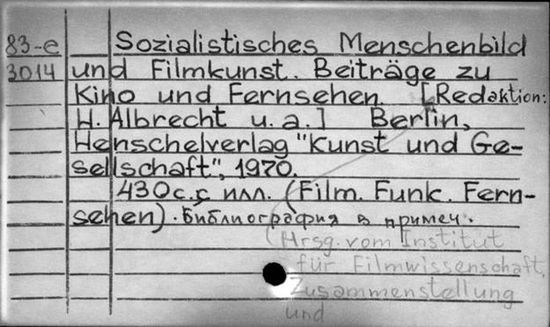 83-е Sozialistisches Menschenbild
3014 und Filmkunst. Beiträge zu
Kino und Fernsehen. [Redaktion:
H. Albrecht u. a.] Berlin,
Henschelverlag "Kunst und Ge-
sellschaft", 1970.
430 с. с илл. (Film. Funk. Fern-
sehen). Библиография в примеч.
(Hrsg. vom Institut
für Filmwissenschaft,
Zusammenstellung
und